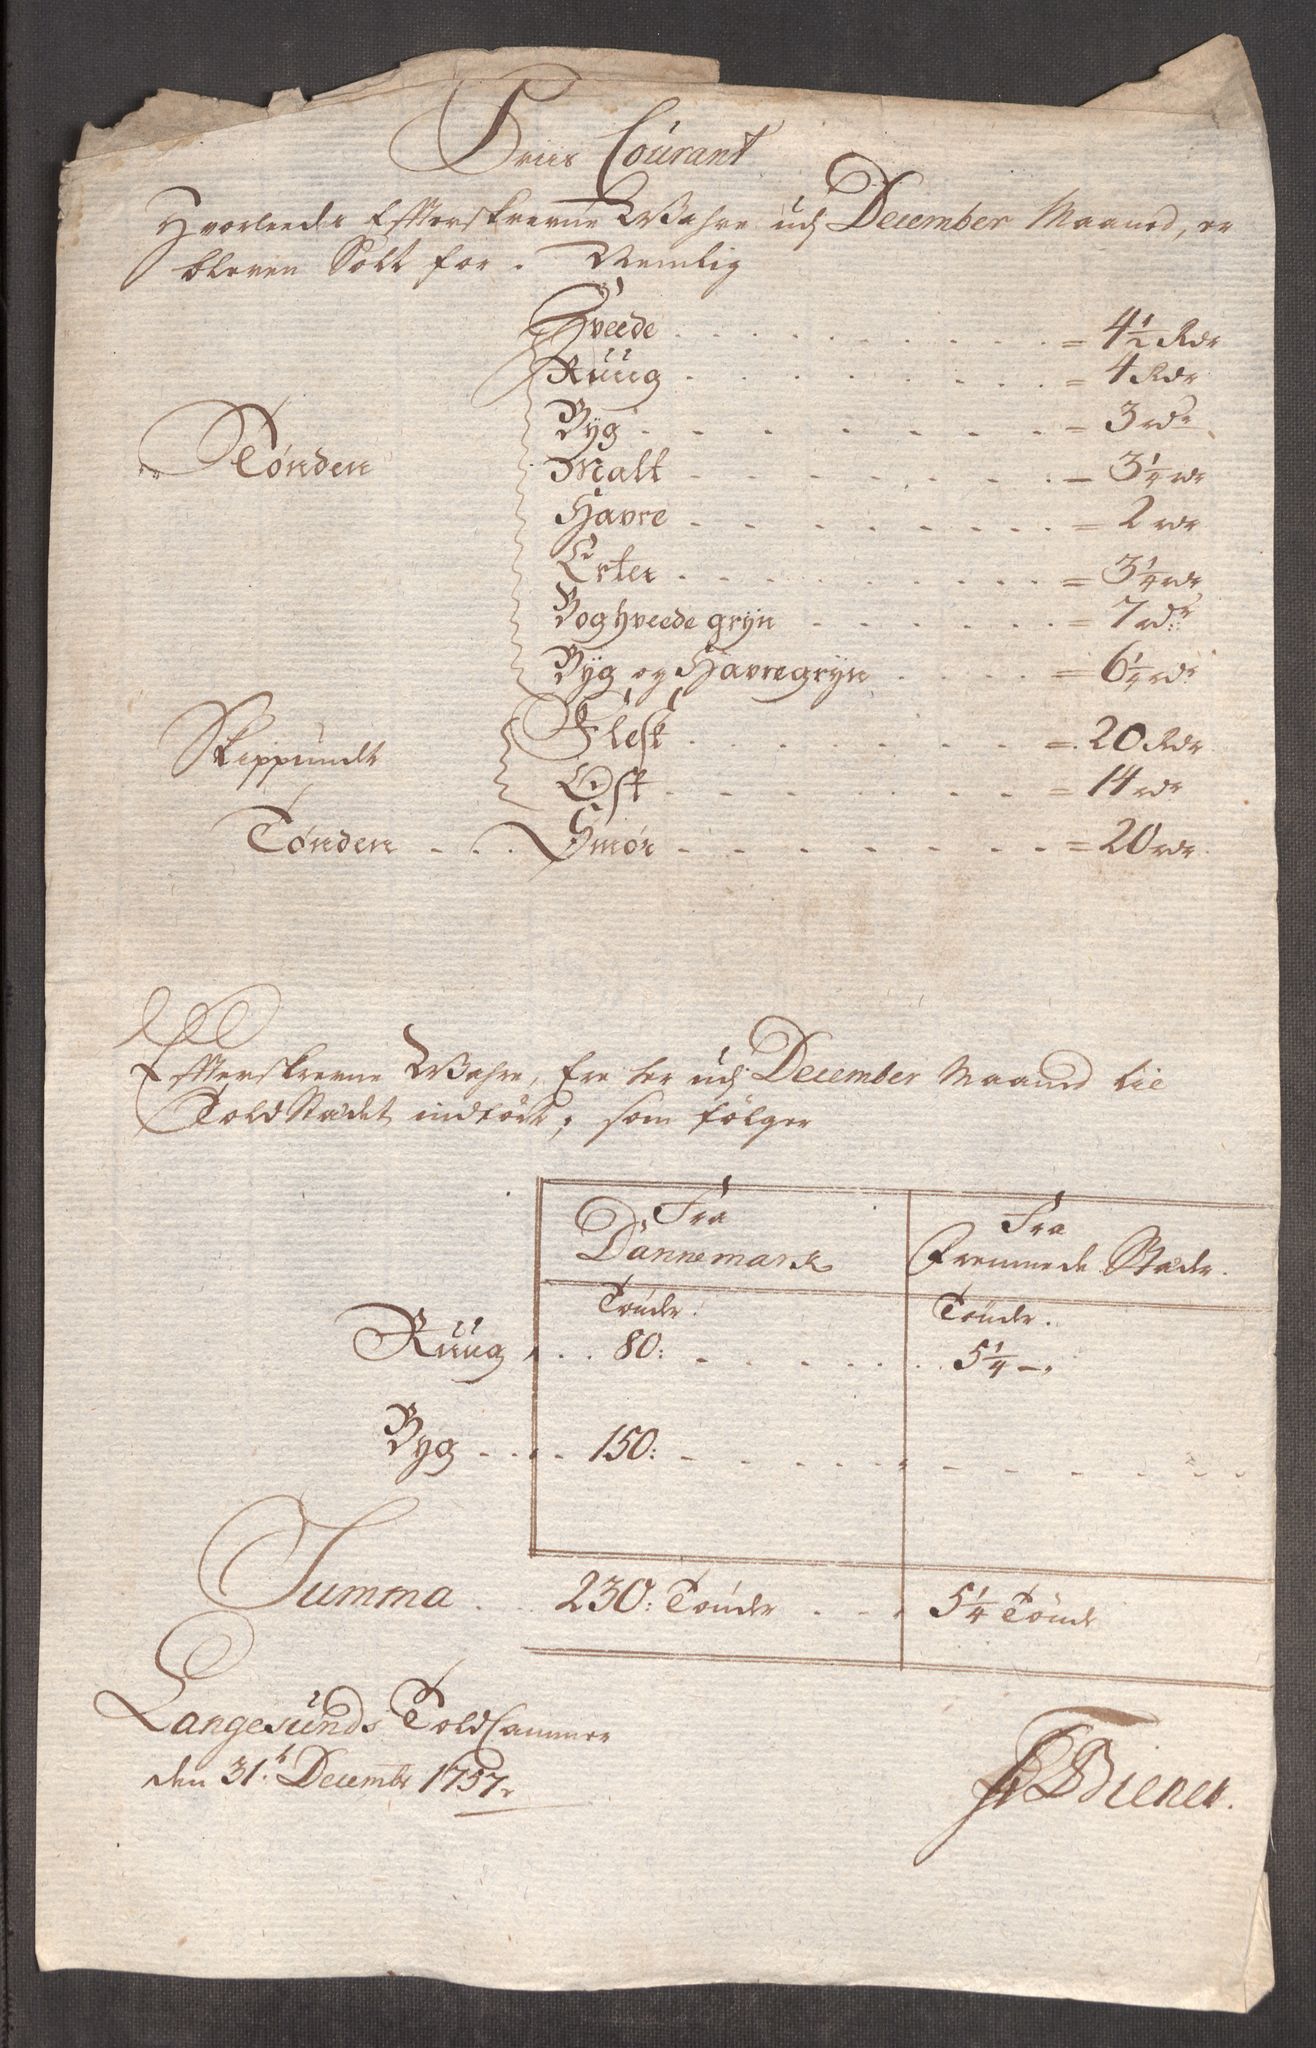 Priis Courant
Hvorleedes Efterskrevne Wahre udj December Maaned, er
bleven Solt for. Nemlig
Hveede = 4 1/2 Rdr
Ruug = 4 Rdr
Byg = 3 rdr
Tønden
Malt = 3 1/4 rdr
Havre = 2 rdr
Erter = 3 1/4 rdr
Boghveede gryn = 7 rdr
Byg og Havregryn = 6 1/4 rdr
Skippundt
Flesk = 20 Rdr
Ost = 14 rdr
Tønden Smør = 20 rdr
Efterskrevne Wahre, Ere her udj December Maaned til
ToldStædet indført; som følger
Fra Dannemark Fra Fremmede Stæder.
Tønder. Tønder.
Ruug 80: 5 1/4
Byg 150:
Summa 230: Tønder 5 1/4 Tønde
Langesunds ToldCammer
den 31. Decembr 1757
Diener.